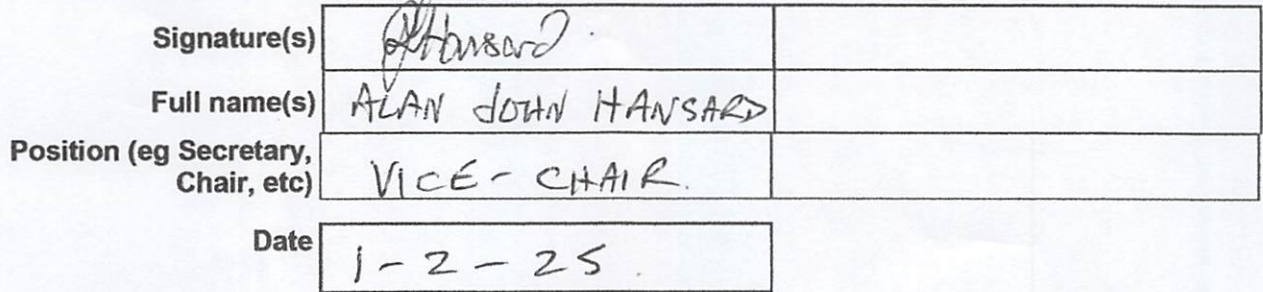 Signature(s) AJHansard
Full name(s) ALAN JOHN HANSARD
Position (eg Secretary,
Chair, etc) VICE - CHAIR.
Date 1 - 2 - 25